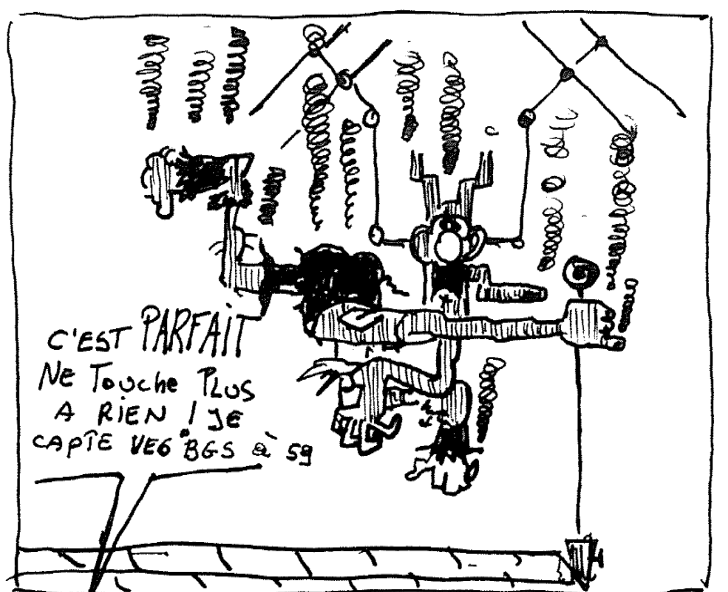 C'EST PARFAIT
NE TOUCHE PLUS
A RIEN ! JE
CAPTE VE6 "BGS à 59